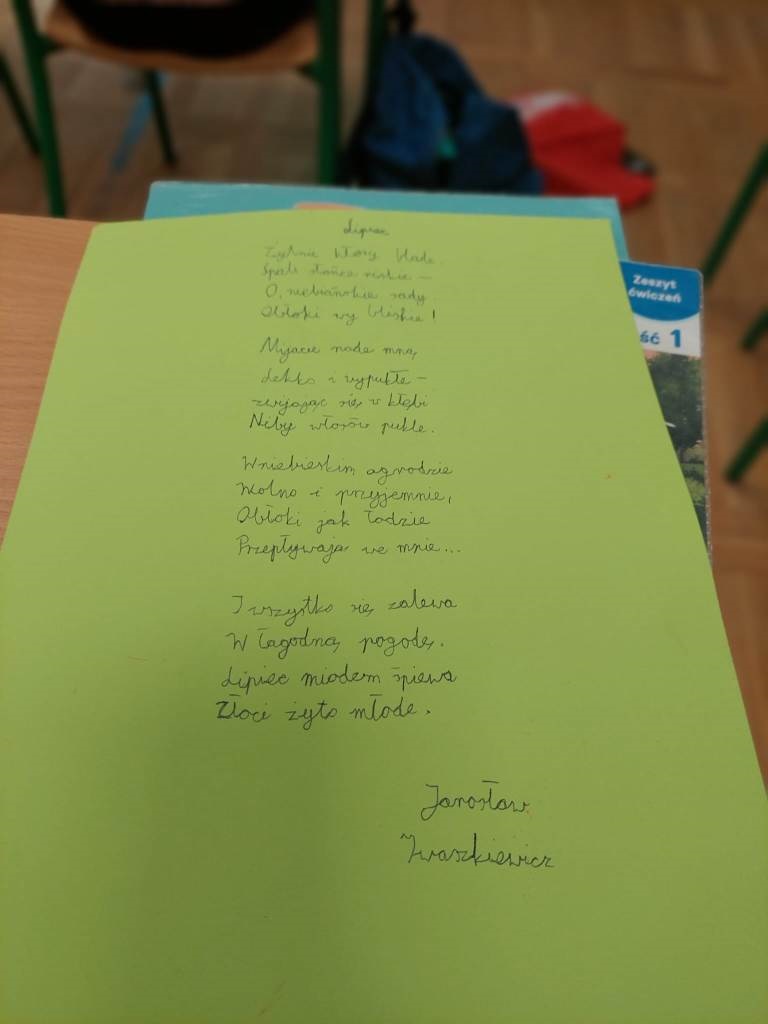 Lipiec
Żytnie kłosy blade
Spali słońce niskie —
O, niebiańskie sady
Obłoki wy bliskie!
Mijacie nade mną,
Lekko i wypukle —
zwijając się w kłębi
Niby włosów pukle.
W niebieskim ogrodzie
Wolno i przyjemnie,
Obłoki jak łodzie
Przepływają we mnie...
I wszystko się zalewa
W łagodną pogodę.
Lipiec miodem śpiewa
Złoci żyto młode.
Jarosław
Iwaszkiewicz
Zeszyt
ćwiczeń
ść 1